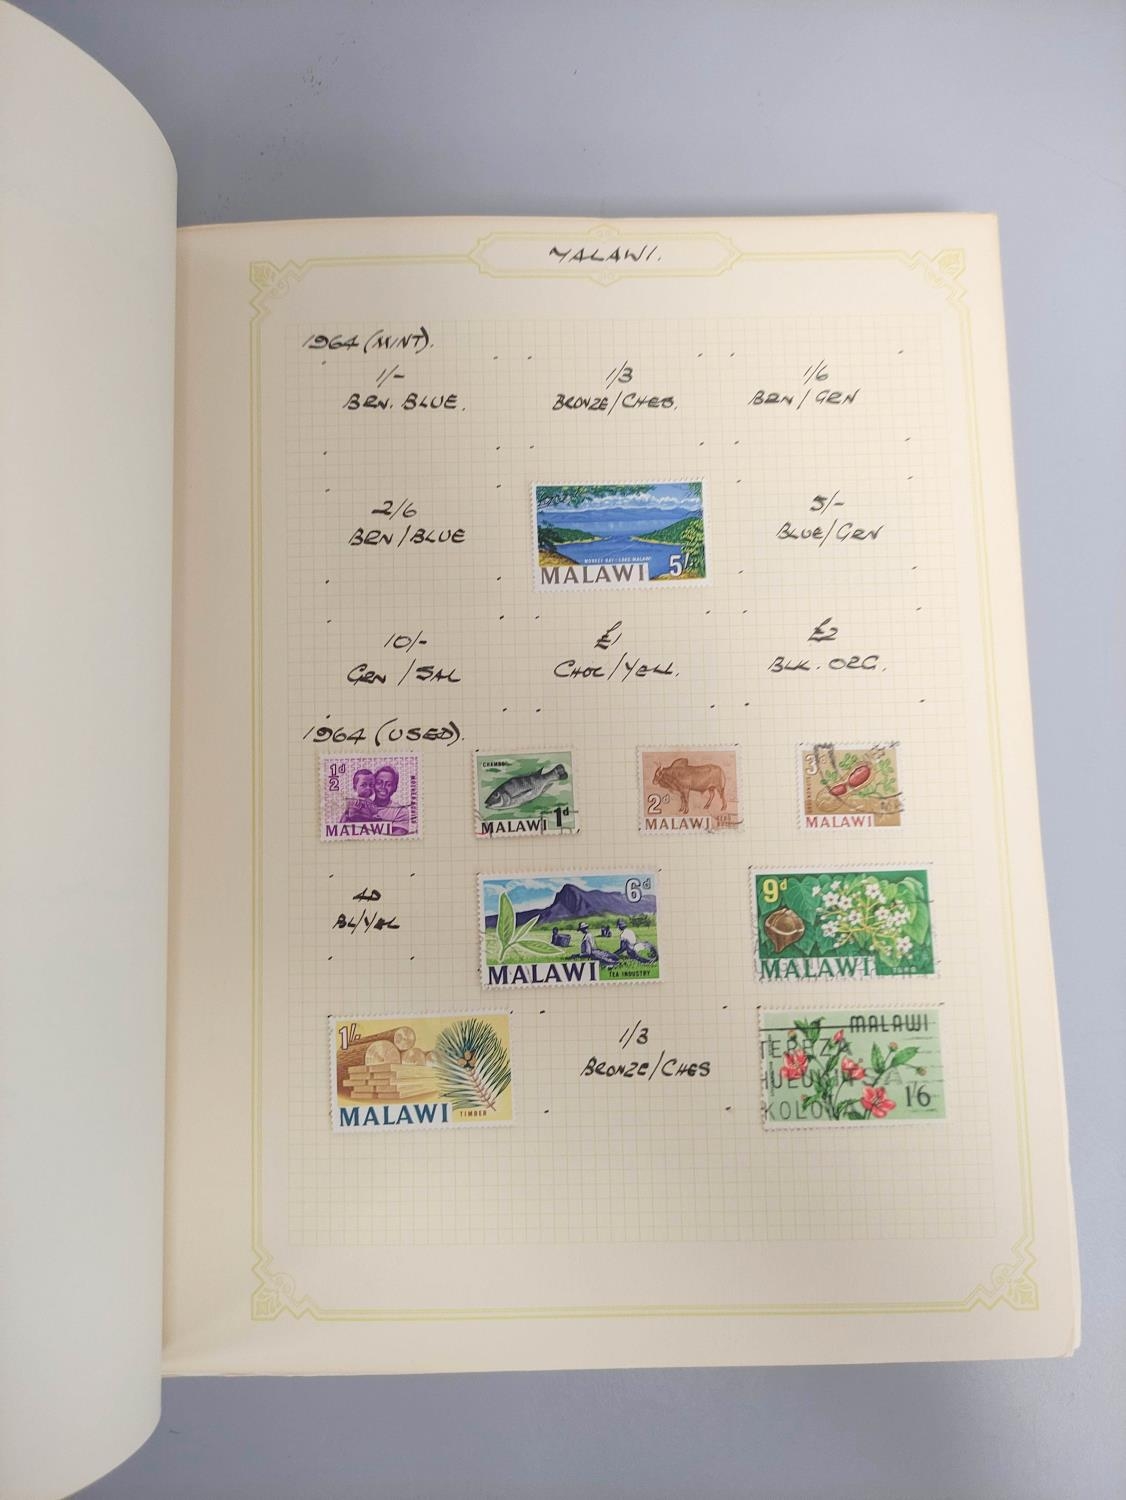 MALAWI.
1964 (MINT).
1/-
BRN. BLUE.
1/3
BRONZE/CHES.
1/6
BRN/GRN
2/6
BRN/BLUE
MONKEY BAY - LAKE MALAWI
MALAWI 5/-
5/-
BLUE/GRN
10/-
GRN/SAL
£1
CHOC/YELL.
£2
BLK. ORG.
1964 (USED).
½d
MOTHER & CHILD
MALAWI
CHAMBO
MALAWI 1d
2d
MALAWI
3d
MALAWI
4D
BL/YEL
6d
MALAWI
TEA INDUSTRY
9d
MALAWI
1/-
MALAWI
TIMBER
1/3
BRONZE/CHES
MALAWI
TEREZA
KOLOWA
1'6